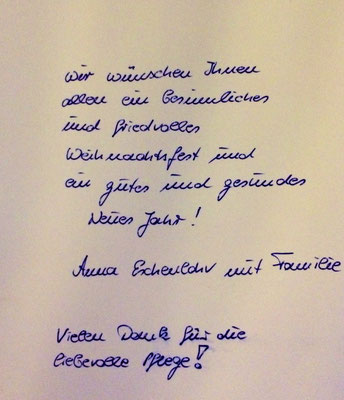 wir wünschen Ihnen
allen ein besinnliches
und friedvolles
Weihnachtsfest und
ein gutes und gesundes
Neues Jahr!
Anna mit Familie
Vielen Dank für die
liebevolle Pflege!